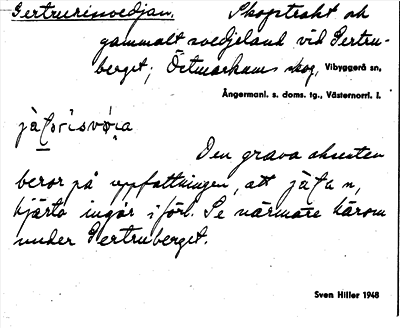 Gertrurisvedjan. Skogstrakt och
gammalt svedjeland vid Gertru-
berget; Östmarkums skog, Vibyggerå sn,
Ångermanl. s. doms. tg., Västernorrl. l.
Den grava aksenten
beror på uppfattningen, att
hjärta ingår i förl. Se närmare härom
under Gertruberget.
Sven Hiller 1948